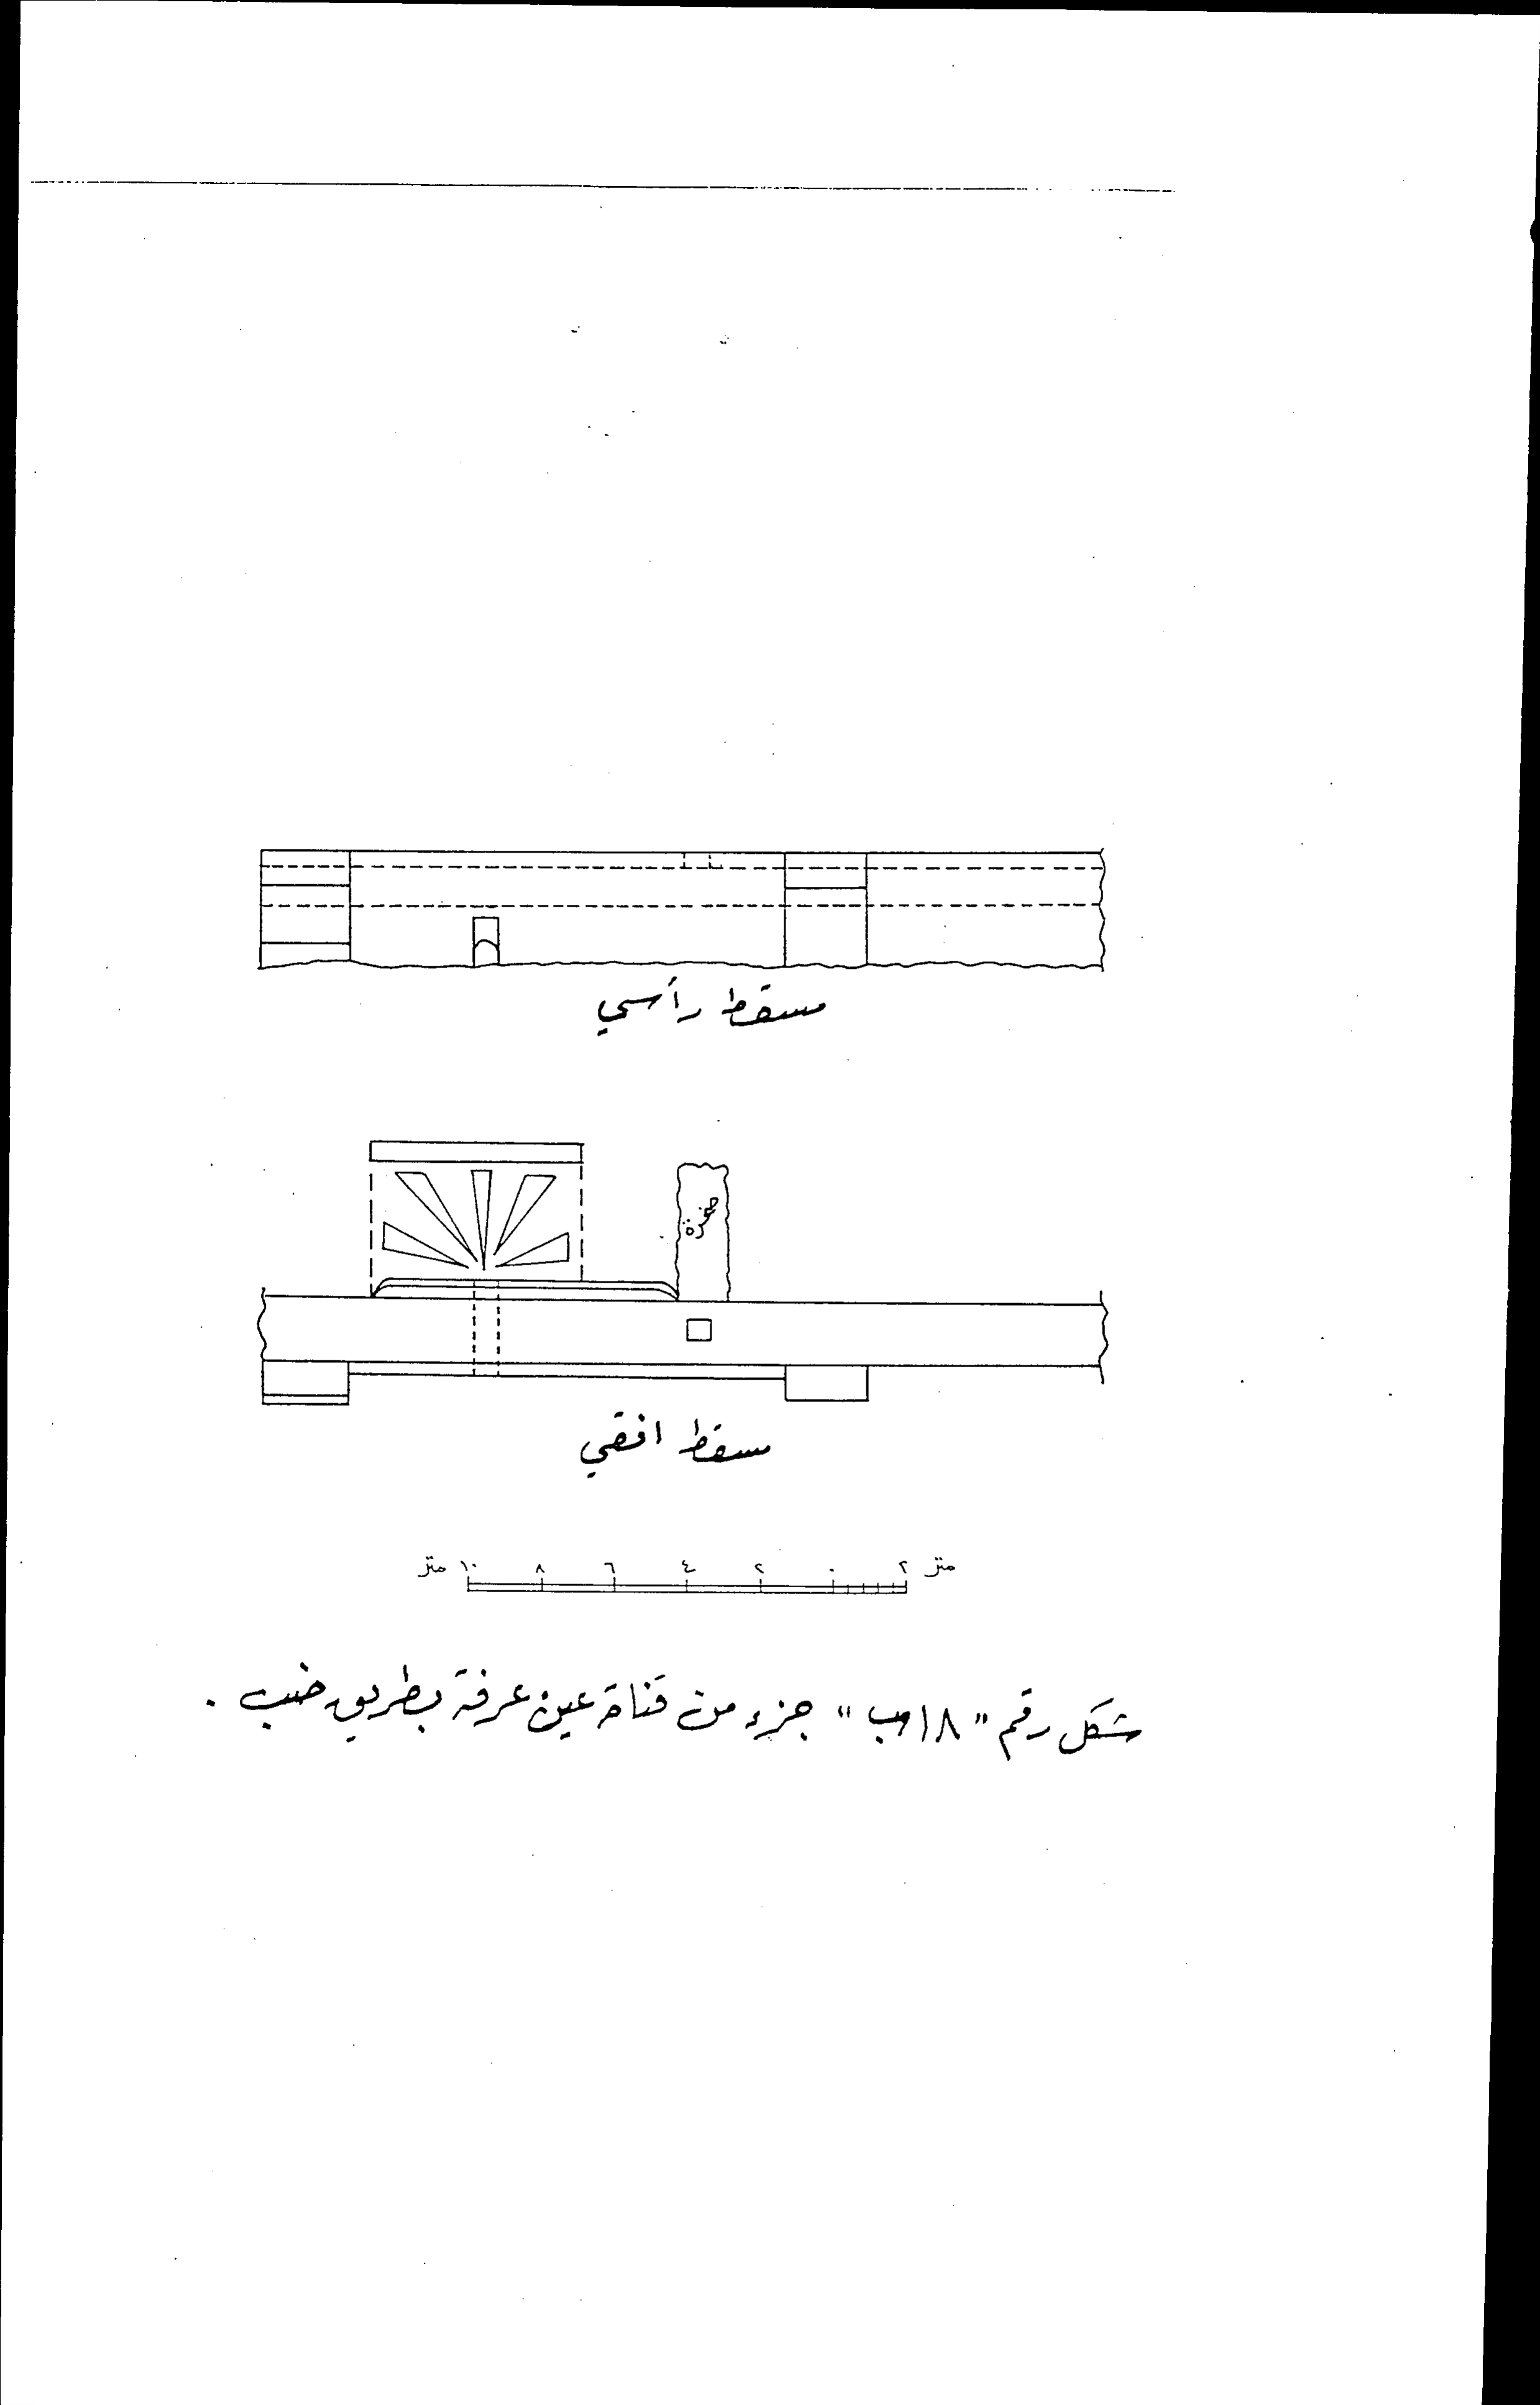 مسقط رأسي
صخرة
مسقط افقي
متر ٢ ٠ ٢ ٤ ٦ ٨ ١٠ متر
شكل رقم "١٨ب" جزء من قناة عين عرفة بطريق ضب .